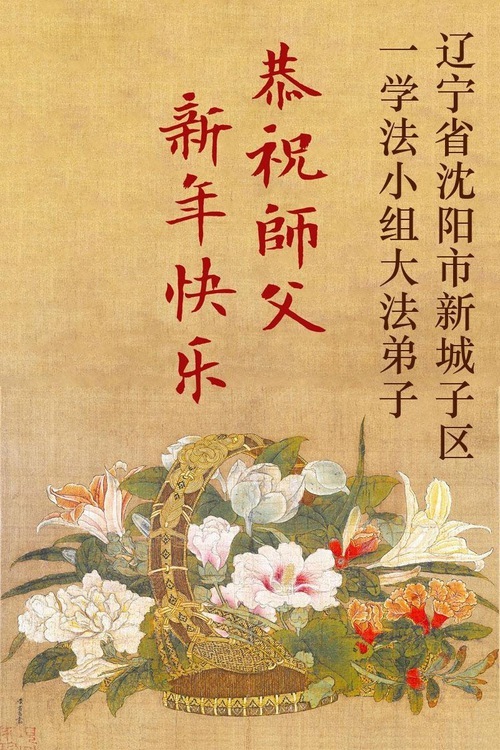 辽宁省沈阳市新城子区
一学法小组大法弟子
恭祝師父
新年快乐